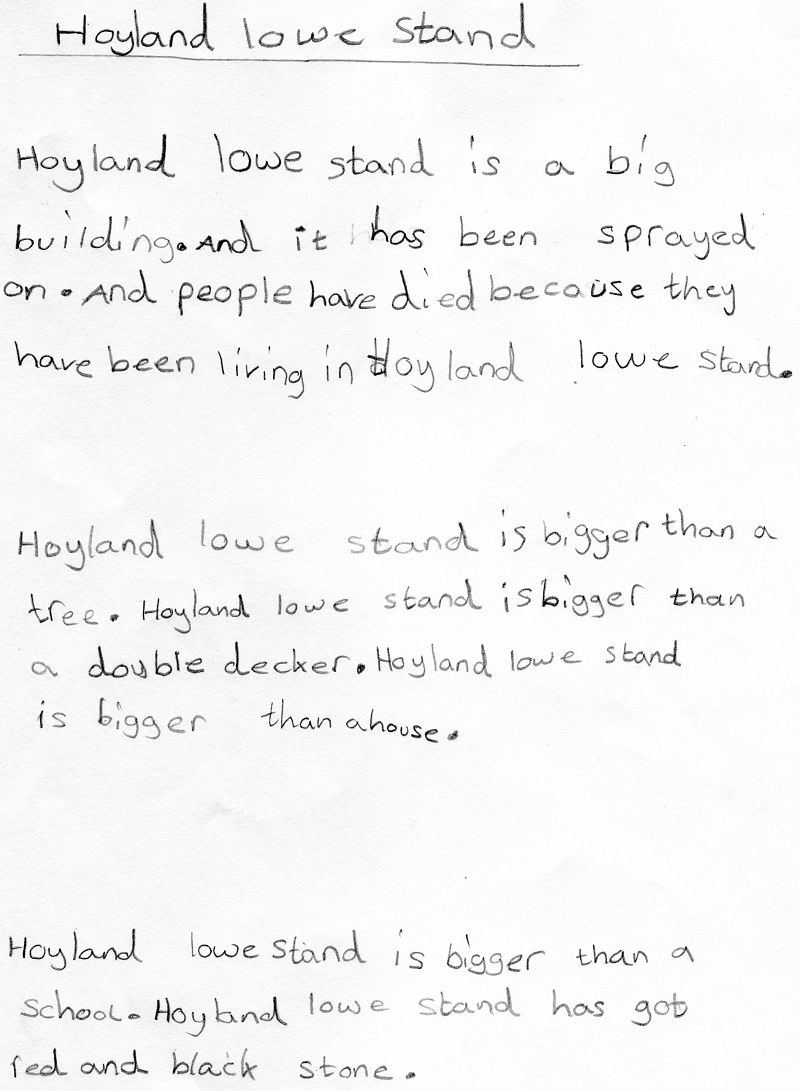 Hoyland lowe stand
Hoyland lowe stand is a big
building. And it has been sprayed
on. And people have died because they
have been living in Hoyland lowe stand.
Hoyland lowe stand is bigger than a
tree. Hoyland lowe stand is bigger than
a double decker. Hoyland lowe stand
is bigger than a house.
Hoyland lowe stand is bigger than a
school. Hoyland lowe stand has got
red and black stone.